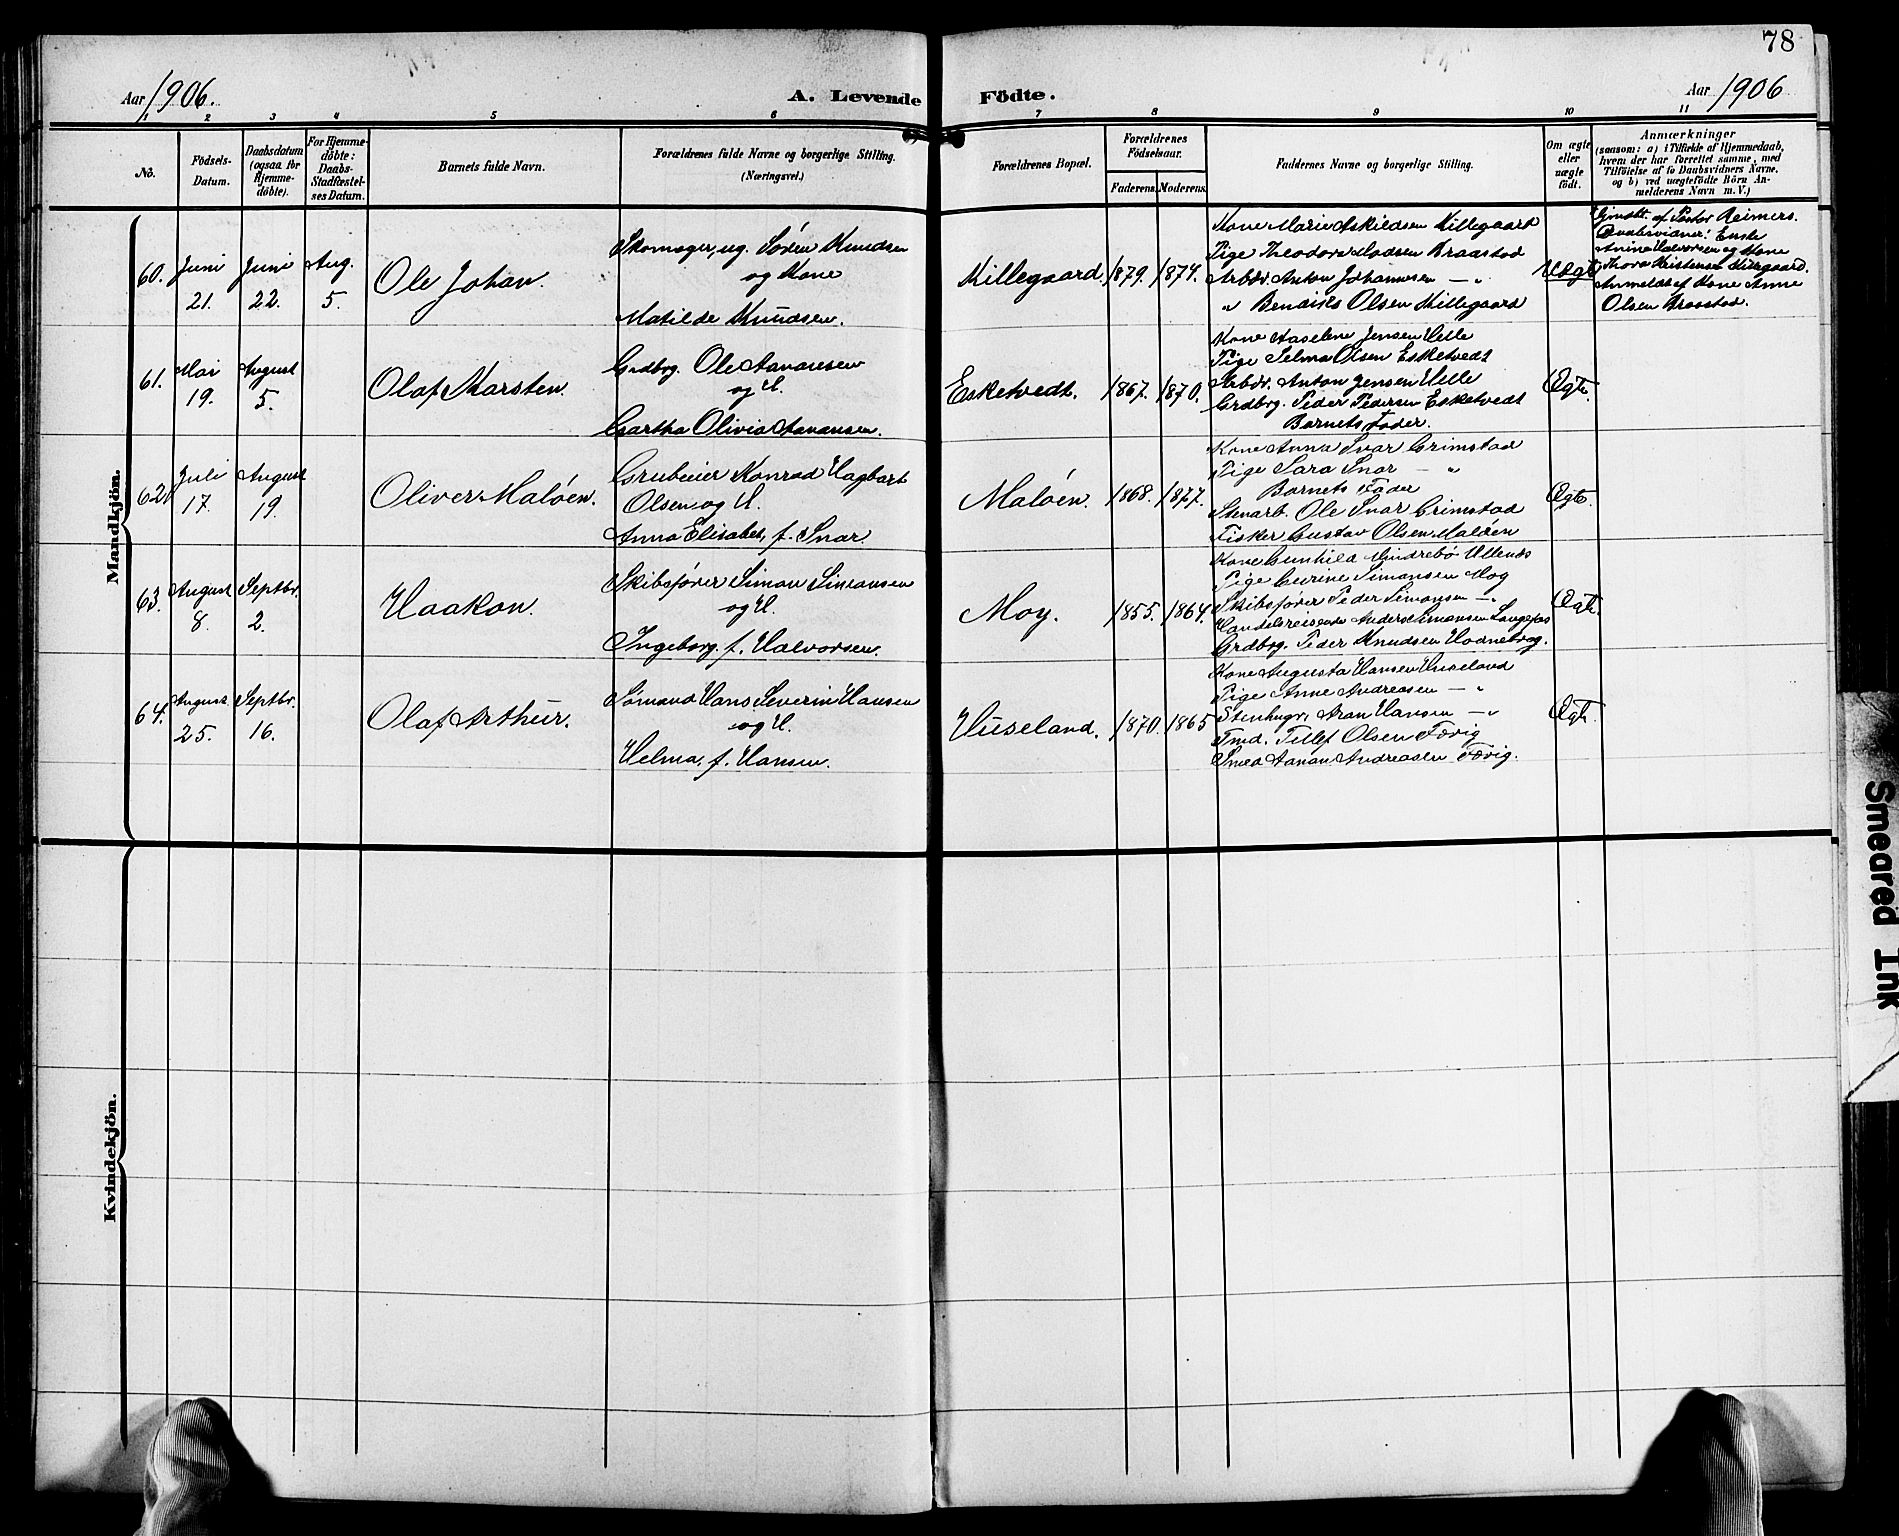 78
Aar 1906.
A. Levende Födte.
Aar 1906
1 2 3 4 5 6 7 8 9 10 11
No.
Födsels-
Datum.
Daabsdatum
(ogsaa for
Hjemme-
döbte).
For Hjemme-
döbte:
Daabs-
Stadfæstel-
ses Datum.
Barnets fulde Navn.
Forældrenes fulde Navne og borgerlige Stilling.
(Næringsvei.)
Forældrenes Bopæl.
Forældrenes
Födselsaar.
Faderens. Moderens.
Faddernes Navne og borgerlige Stilling.
Om ægte
eller
uægte
födt.
Anmærkninger
(saasom: a) i Tilfælde af Hjemmedaab,
hvem der har forrettet samme, med
Tilföielse af to Daabsvidners Navne.
og b) ved uægtefödte Börn An-
melderens Navn m. V.)
Mandkjön.
60.
Juni
21.
Juni
22.
Aug.
5.
Ole Johan.
Skomager, ug. Sören Knudsen
og Kone
Matilde Knudsen.
Killegaard
1879.
1874.
Kone Marie Askildsen Killegaard
Pige Theodora Madsen Braastad
Arbdr. Anton Johannesen — „
„ Bendiks Olsen Killegaard
Uægte
Hjmdbt. af Pastor Reimers.
Daabsvidner: Enke
Anine Halvorsen og Kone
Thora Kristensen Killegaard.
Anmeldt af Kone Anne
Olsen Braastad.
61.
Mai
19.
August
5.
Olaf Karsten.
Grdbrg. Ole Aanonsen
og H.
Olivia Aanonsen.
Esketvedt.
1867.
1870.
Kone Aaselene Jensen Helle
Pige Selma Olsen Esketvedt
Arbdr. Anton Jensen Helle
Grdbrg. Peder Pedersen Esketvedt
Barnets Fader.
Ægte.
62.
Juli
17.
August
19.
Oliver Malöen.
Grubeeier Konrad Hagbart
Olsen og H.
Anna Elisabet, f. Snar.
Malöen.
1868.
1877.
Kone Anna Snar Grimstad
Pige Sara Snar — „
Barnets Fader
Stenarb. Ole Snar Grimstad
Fisker Gustav Olsen Malöen
Ægte.
63.
August
8.
Septbr.
2.
Haakon.
Skibsförer Simon Simonsen
og H.
Ingeborg f. Halvorsen.
Moy.
1855.
1864.
Kone Gunhild Mindrebö Ullenes
Pige Gurine Simonsen Moy
Skibsförer Peder Simonsen — „
Handelsreisende Anders Simonsen
Grdbrg. Peder Knudsen Hodnebrog.
Ægte.
64.
August
25.
Septbr.
16.
Olaf Arthur.
Sömand Hans Severin Hansen
og H.
Helma, f. Hansen.
Huseland.
1870.
1865
Kone Augusta Hansen Huseland
Pige Anne Andreasen — „
Stenhugr. Aran Hansen — „
Tmd. Tellef Olsen Færvig
Smed Aanan Andreasen Færvig.
Ægte.
Kvindekjön.
Smeared Ink